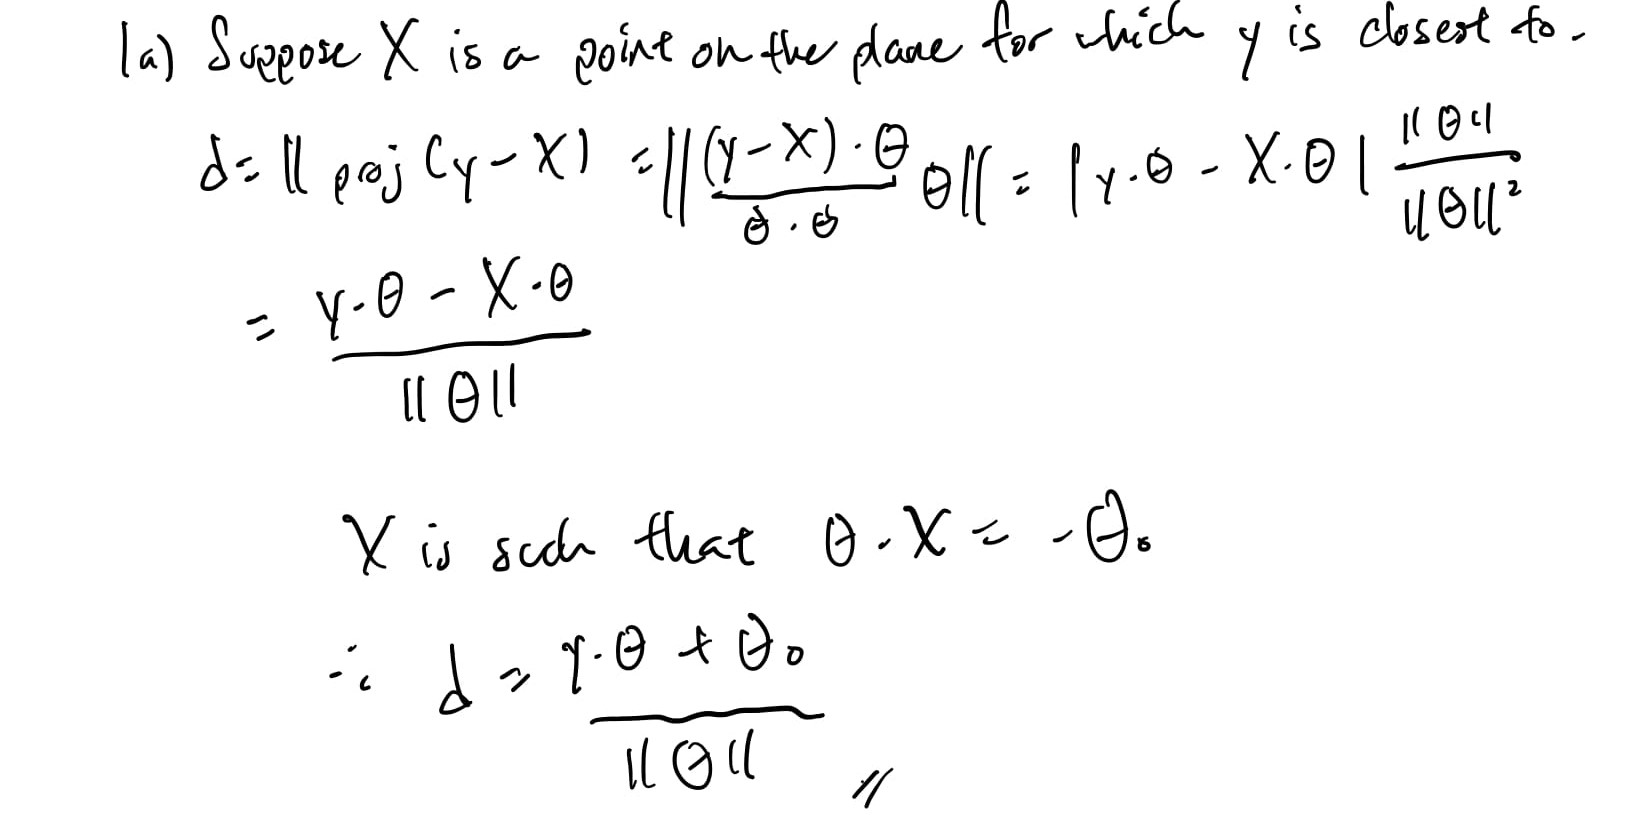 1a) Suppose X is a point on the plane for which y is closest to.
d = || proj (y - X) = || \frac{(y - X) · θ}{θ · θ} θ || = | y · θ - X · θ | \frac{||θ||}{||θ||²}
= \frac{y · θ - X · θ}{||θ||}
X is such that θ · X = -θ₀
∴ d = \frac{y · θ + θ₀}{||θ||} //